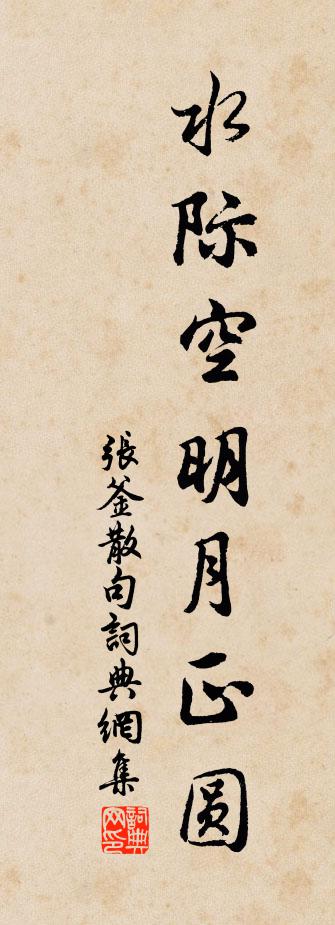 水际空明月正圆
張釜散句詞典網集
詞典网印